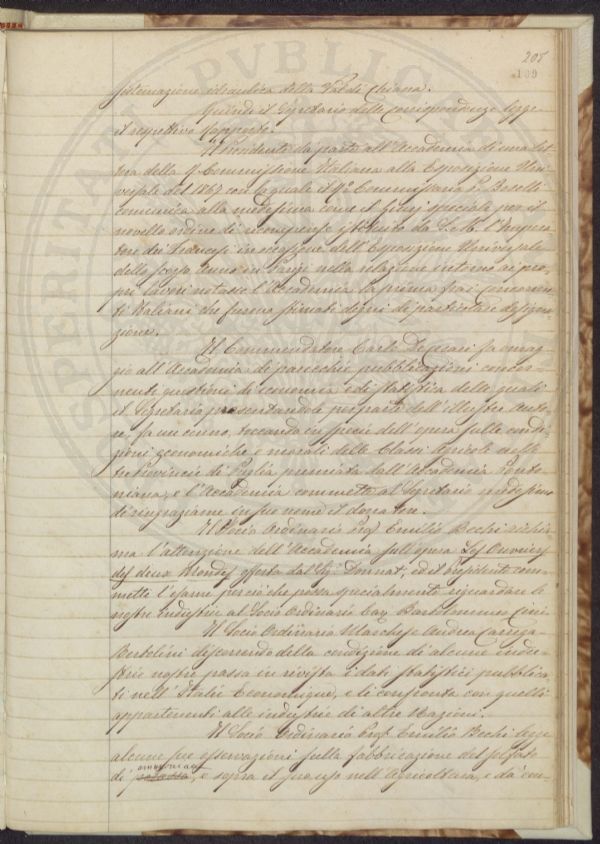 208
109
sistemazione idraulica della Val di Chiana.
Quindi il Segretario delle corrispondenze legge
il respettivo rapporto.
Il Presidente dà parte all'Accademia di una let
tera della Commissione Italiana alla Esposizione Uni
versale del 1867 con la quale il Commissario
comunica alla medesima come il Giurì speciale per il
novello ordine di ricompense istituito da S. M. l'Impera
tore dei Francesi in occasione dell'Esposizione Universale
dello scorso anno in Parigi nella relazione intorno ai pro
pri lavori notasse l'Accademia la prima fra i
ti Italiani che furono stimati degni di particolare design
zione.
Il Commendatore Carlo De Cesari fa omag
gio all'Accademia di parecchie pubblicazioni concer
nenti questioni di economia e di statistica delle quali
il Segretario presentandole per parte dell'illustre Auto
re, fa un cenno, toccando in specie dell'opera sulle condi
zioni economiche e morali delle Classi Agricole nelle
tre Provincie di Puglia premiata dall'Accademia Ponta
niana, e l'Accademia commette al Segretario medesimo
di ringraziarne in suo nome il donatore.
Il Socio Ordinario Prof Emilio Bechi richia
ma l'attenzione dell'Accademia sull'opera Les Ouvriers
des deux Mondes offerta dal Sig. Donnat, ed il Presidente com
mette l'esame perciò che possa specialmente riguardare le
nostre industrie al Socio Ordinario Cav. Bartolommeo Cini.
Il Socio Ordinario Marchese Andrea Carrega
Bertolini discorrendo della condizione di alcune indu
strie nostre passa in rivista i dati statistici pubblica
ti nell'Italie Economique, e li confronta con quelli
appartenenti alle industrie di altre Nazioni.
Il Socio Ordinario Prof Emilio Bechi legge
alcune sue osservazioni sulla fabbricazione del solfato
ammoniaco
di potassa, e sopra il suo uso nell'Agricoltura, e dà co